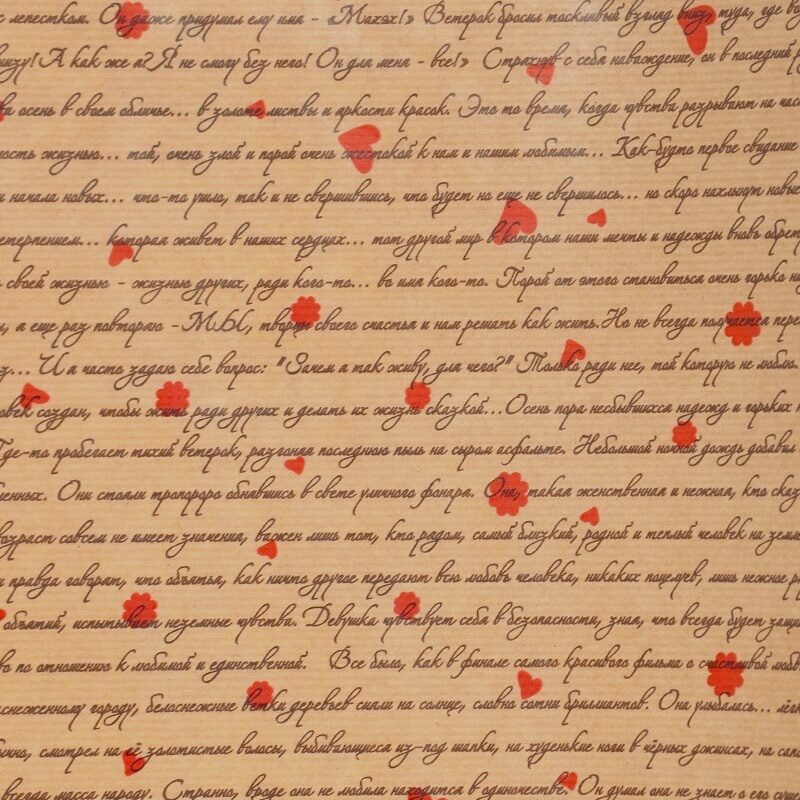 с лепестком. Он даже придумал ему имя - «Махэх!» Ветерок бросил тоскливый взгляд вниз, туда, где
внизу! А как же я? Я не смогу без него! Он для меня - все!» Страхнув с себя наваждение, он в последний
осень в своем обличье... в золоте листвы и яркости красок. Это то время, когда чувства разрывают на
жизнью... той, очень злой и порой очень жестокой к нам и нашим любимым... Как-будто первое свидание
и начала новых... что-то ушло, так и не свершившись, что будет но еще не свершилось... но скоро нахлынут новые
которая живет в наших сердцах... тот другой мир в котором наши мечты и надежды вновь
своей жизнью - жизнью других, ради кого-то... во имя кого-то. Порой от этого становиться очень горько
а еще раз повторяю - МЫ, творцы своего счастья и нам решать как жить. Но не всегда получается
И я часто задаю себе вопрос: "Зачем я так живу, для чего?" Только ради нее, той которую не люблю.
создан, чтобы жить ради других и делать их жизнь сказкой... Осень пора несбывшихся надежд и горьких
Где-то пробегает тихий ветерок, разгоняя последнюю пыль на сыром асфальте. Небольшой ночной дождь добавил
Они стояли тропороро обнявшись в свете уличного фонаря. Она, такая женственная и нежная, кто
возраст совсем не имеет значения, важен лишь тот, кто рядом, самый близкий, родной и теплый человек на
и правда говорят, что объятья, как ничто другое передают всю любовь человека, никаких поцелуев, лишь нежное
объятий, испытывает неземные чувства. Девушка чувствует себя в безопасности, зная, что всегда будет
по отношению к любимой и единственной. Все было, как в финале самого красивого фильма о счастливой
городу, белоснежные ветки деревьев сияли на солнце, словно сотни бриллиантов. Она улыбалась...
смотрел на её золотистые волосы, выбивающиеся из-под шапки, на худенькие ноги в чёрных джинсах, на
всегда масса народу. Странно, вроде она не любила находится в одиночестве. Он думал она не знает о его